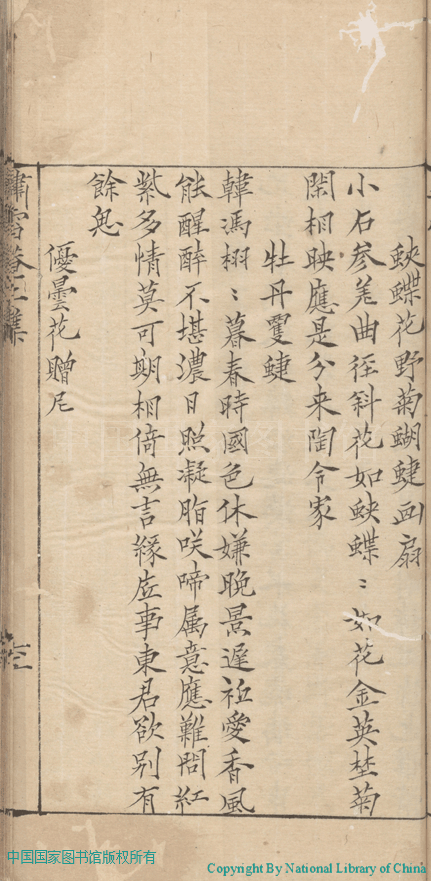 蛺蝶花野菊蝴蝶画扇
小石参差曲径斜花如蛺蝶〻如花金英埜菊
閑相映應是分来陶令家
牡丹雙蝶
韓馮栩〻暮春時國色休嫌晚景遲祗愛香風
能醒醉不堪濃日照凝脂咲啼属意應難問紅
紫多情莫可期相倚無言緣底事東君欲别有
餘思
優曇花贈尼
中国国家图书馆版权所有
Copyright By National Library of China